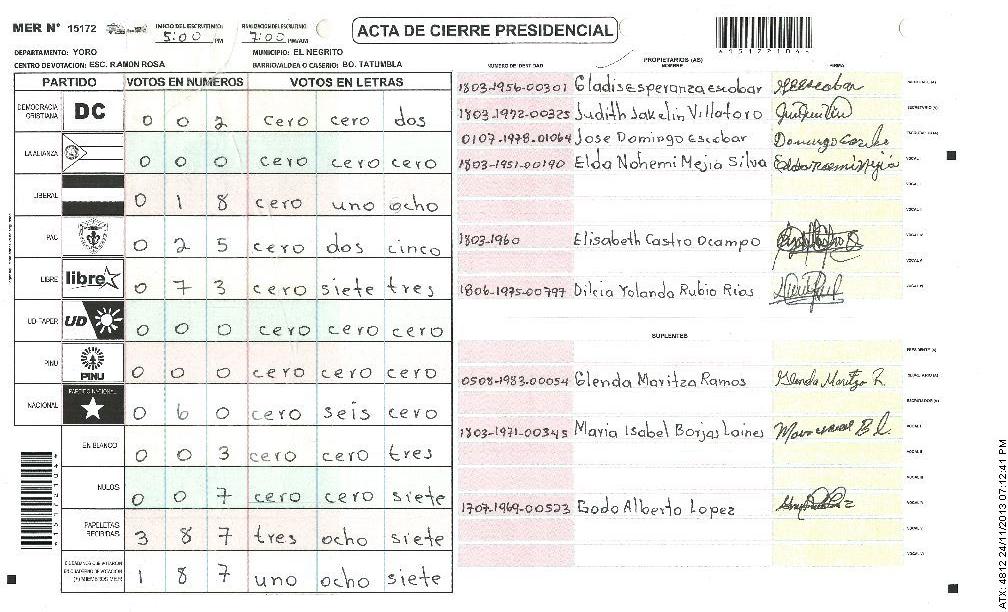 MER N° 15172
INICIO DEL ESCRUTINIO 5:00 PM
FINALIZACION DEL ESCRUTINIO 7:00 PM/AM
ACTA DE CIERRE PRESIDENCIAL
DEPARTAMENTO: YORO
MUNICIPIO: EL NEGRITO
CENTRO DE VOTACION: ESC. RAMON ROSA
BARRIO/ALDEA O CASERIO: BO. TATUMBLA
PARTIDO VOTOS EN NUMEROS VOTOS EN LETRAS
DEMOCRACIA CRISTIANA DC 0 0 2 cero cero dos
LA ALIANZA 0 0 0 cero cero cero
LIBERAL 0 1 8 cero uno ocho
PAC 0 2 5 cero dos cinco
LIBRE libre 0 7 3 cero siete tres
UD-FAPER UD 0 0 0 cero cero cero
PINU PINU 0 0 0 cero cero cero
NACIONAL PARTIDO NACIONAL 0 6 0 cero seis cero
EN BLANCO 0 0 3 cero cero tres
NULOS 0 0 7 cero cero siete
PAPELETAS RECIBIDAS 3 8 7 tres ocho siete
CIUDADANOS QUE VOTARON EN CUADERNO DE VOTACION (+) MIEMBROS MER 1 8 7 uno ocho siete
PROPIETARIOS (AS)
NUMERO DE IDENTIDAD NOMBRE FIRMA
1803-1956-00301 Gladis esperanza escobar
1803-1972-00325 Judith Jakelin Villatoro
0107-1978-01064 Jose Domingo Escobar
1803-1951-00190 Elda Nohemi Mejia Silva
1803-1960 Elisabeth Castro Ocampo
1806-1975-00797 Dilcia Yolanda Rubio Rios
SUPLENTES
0508-1983-00054 Glenda Maritza Ramos Glenda Maritza R.
1803-1971-00345 Maria Isabel Borjas Laines
1707-1969-00523 Godo Alberto Lopez
ATX: 4812 24/11/2013 07:12:41 PM